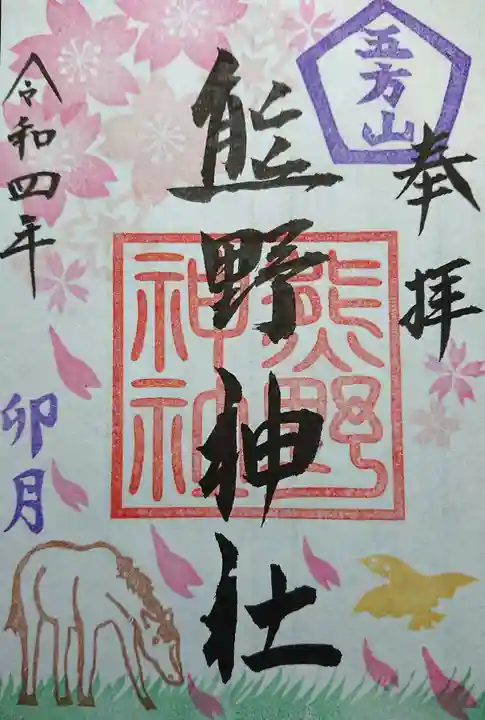 五方山
奉拝
熊野神社
熊野
神社
令和四年
卯月